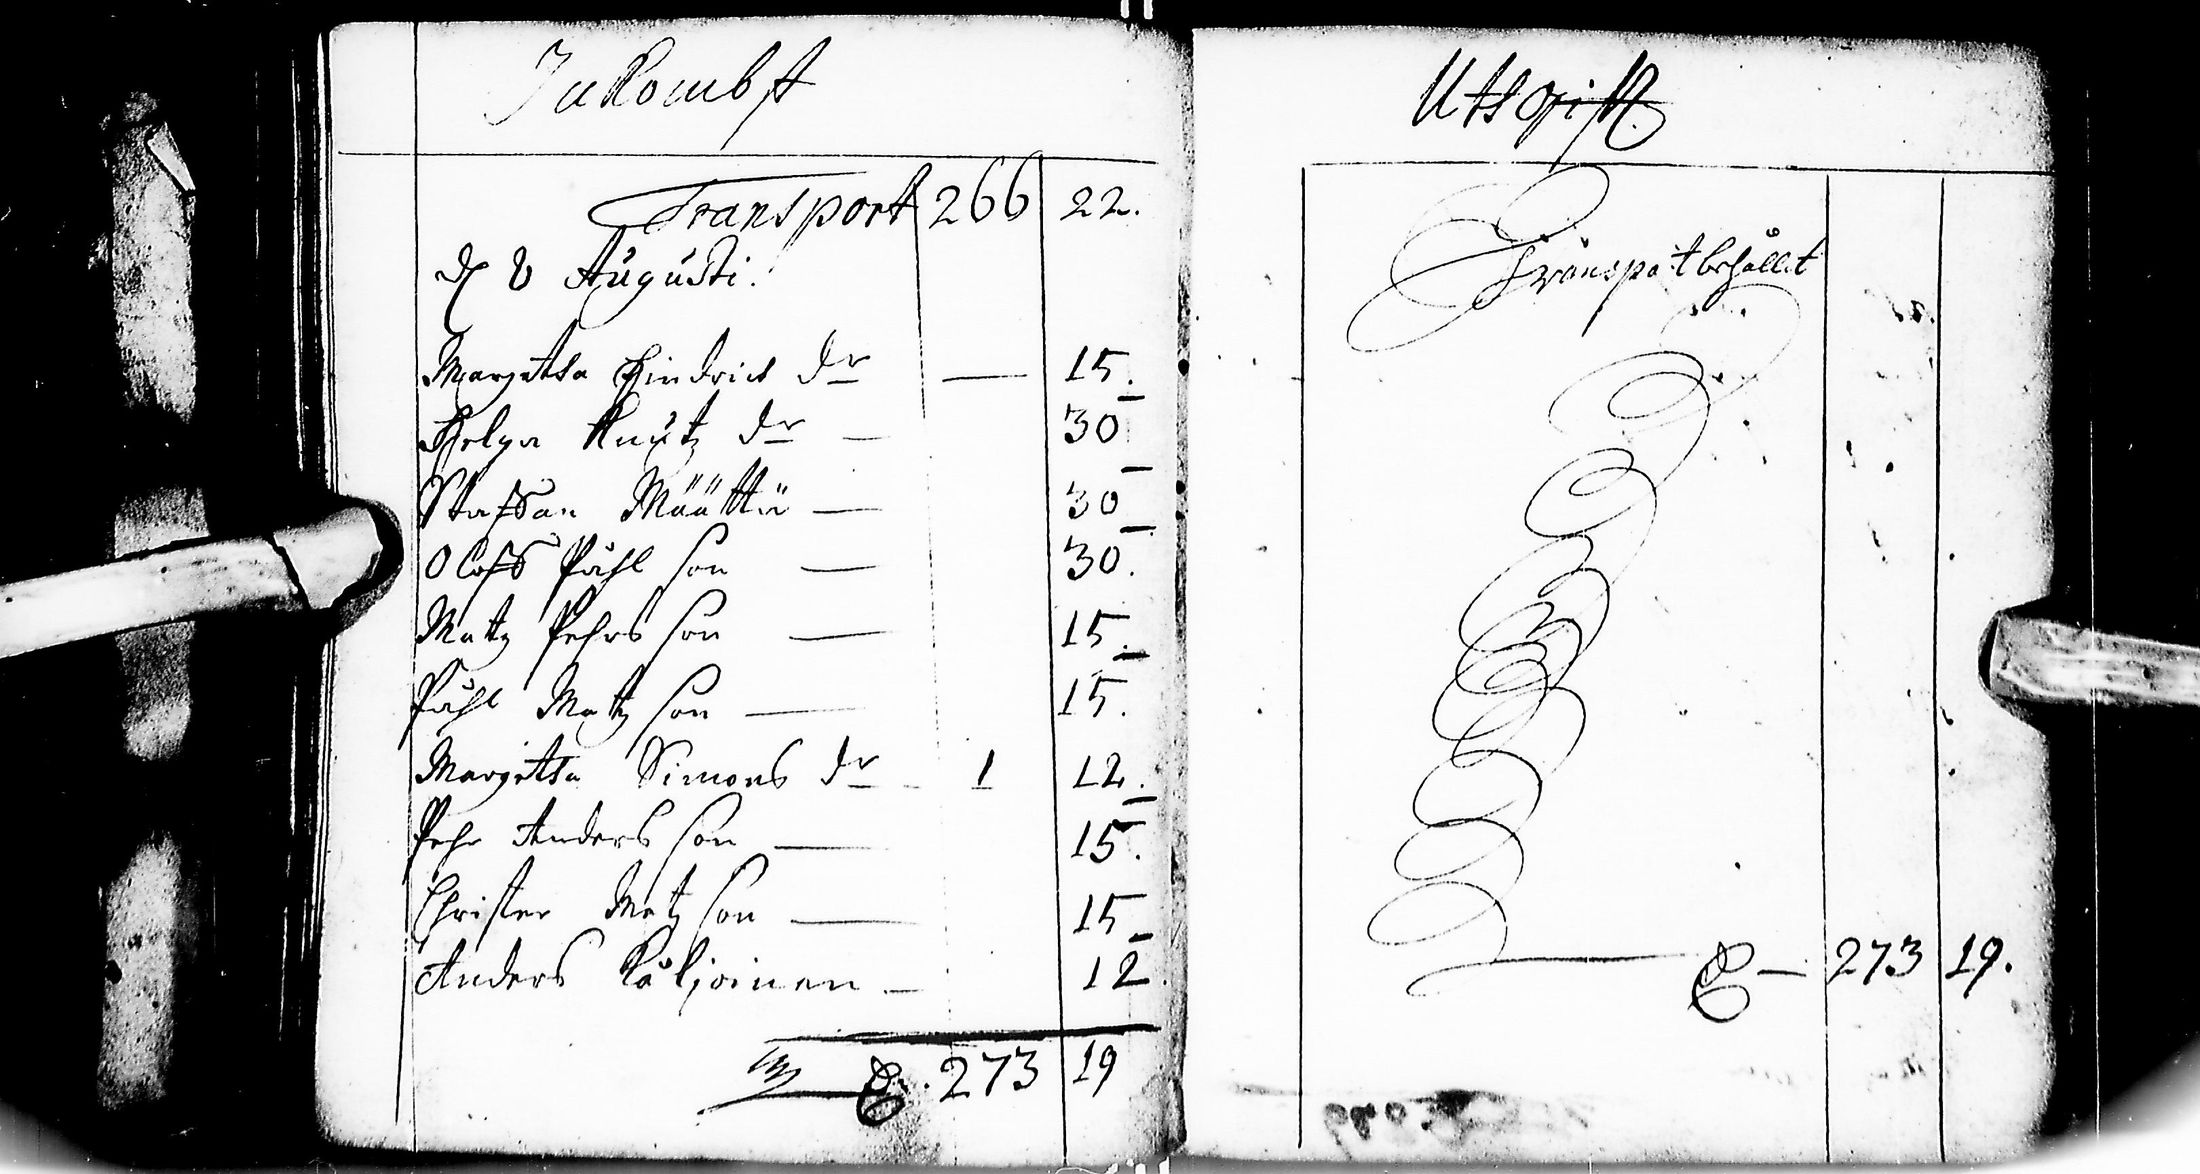 Inkombst
Transport 266 22.
d 8 Augusti.
Margetha Hindrics dr — 15.
Helga Knutz dr — 30
Staffan Määttä — 30
Oloff Påhl son — 30.
Matz Pehrs son — 15.
Påhl Matz son — 15.
Margetha Simons dr 1 12.
Pehr Anders son — 15.
Christer Matz son — 15
Anders — 12
273 19
Utgift.
Transport behållit
273 19.